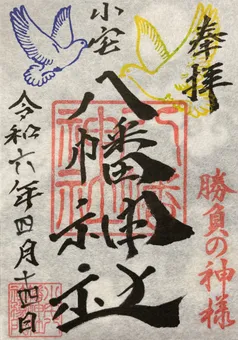 奉拝
勝負の神様
小室
八幡神社
令和六年四月十四日